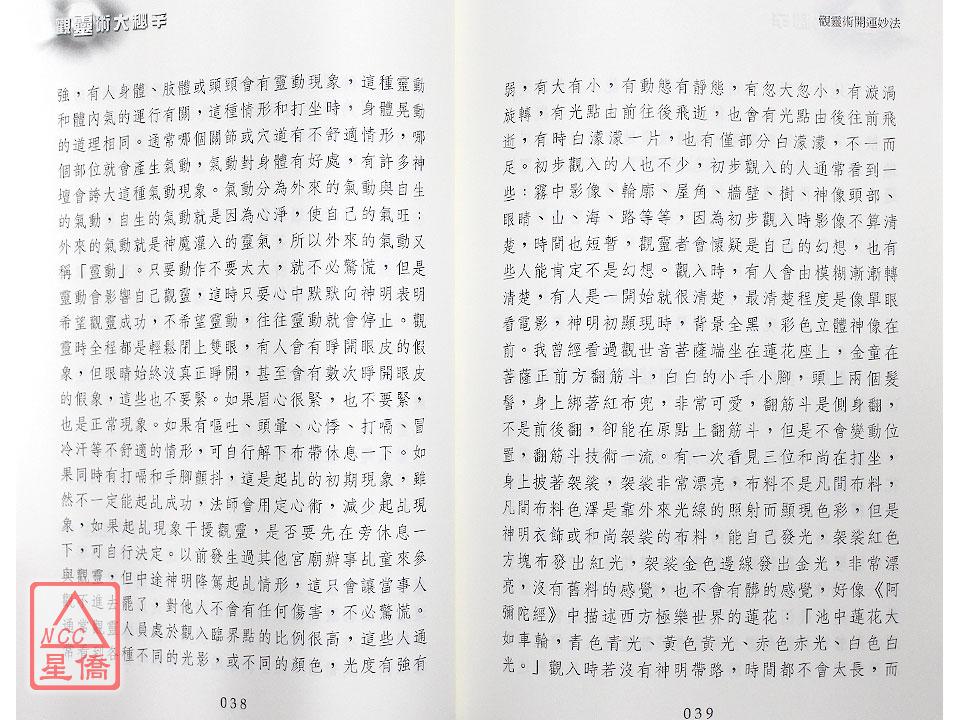 觀靈術大秘笈
強，有人身體、肢體或頭頸會有靈動現象，這種靈動
和體內氣的運行有關，這種情形和打坐時，身體晃動
的道理相同。通常哪個關節或穴道有不舒適情形，哪
個部位就會產生氣動，氣動對身體有好處，有許多神
壇會誇大這種氣動現象。氣動分為外來的氣動與自生
的氣動，自生的氣動就是因為心淨，使自己的氣旺；
外來的氣動就是神魔灌入的靈氣，所以外來的氣動又
稱「靈動」。只要動作不要太大，就不必驚慌，但是
靈動會影響自己觀靈，這時只要心中默默向神明表明
希望觀靈成功，不希望靈動，往往靈動就會停止。觀
靈時全程都是輕鬆閉上雙眼，有人會有睜開眼皮的假
象，但眼睛始終沒真正睜開，甚至會有數次睜開眼皮
的假象，這些也不要緊。如果眉心很緊，也不要緊，
也是正常現象。如果有嘔吐、頭暈、心悸、打嗝、冒
冷汗等不舒適的情形，可自行解下布帶休息一下。如
果同時有打嗝和手腳顫抖，這是起乩的初期現象，雖
然不一定能起乩成功，法師會用定心術，減少起乩現
象，如果起乩現象干擾觀靈，是否要先在旁休息一
下，可自行決定。以前發生過其他宮廟辦事乩童來參
與觀靈，但中途神明降駕起乩情形，這只會讓當事人
不進去罷了，對他人不會有任何傷害，不必驚慌。
通常觀靈人員處於觀入臨界點的比例很高，這些人通
常看到各種不同的光影，或不同的顏色，光度有強有
038
NCC
星僑
觀靈術開運妙法
弱，有大有小，有動態有靜態，有忽大忽小，有漩渦
旋轉，有光點由前往後飛逝，也會有光點由後往前飛
逝，有時白濛濛一片，也有僅部分白濛濛，不一而
足。初步觀入的人也不少，初步觀入的人通常看到一
些：霧中影像、輪廓、屋角、牆壁、樹、神像頭部、
眼睛、山、海、路等等，因為初步觀入時影像不算清
楚，時間也短暫，觀靈者會懷疑是自己的幻想，也有
些人能肯定不是幻想。觀入時，有人會由模糊漸漸轉
清楚，有人是一開始就很清楚，最清楚程度是像單眼
看電影，神明初顯現時，背景全黑，彩色立體神像在
前。我曾經看過觀世音菩薩端坐在蓮花座上，金童在
菩薩正前方翻筋斗，白白的小手小腳，頭上兩個髮
髻，身上綁著紅布兜，非常可愛，翻筋斗是側身翻，
不是前後翻，卻能在原點上翻筋斗，但是不會變動位
置，翻筋斗技術一流。有一次看見三位和尚在打坐，
身上披著袈裟，袈裟非常漂亮，布料不是凡間布料，
凡間布料色澤是靠外來光線的照射而顯現色彩，但是
神明衣飾或和尚袈裟的布料，能自己發光，袈裟紅色
方塊布發出紅光，袈裟金色邊線發出金光，非常漂
亮，沒有舊料的感覺，也不會有髒的感覺，好像《阿
彌陀經》中描述西方極樂世界的蓮花：「池中蓮花大
如車輪，青色青光、黃色黃光、赤色赤光、白色白
光。」觀入時若沒有神明帶路，時間都不會太長，而
039